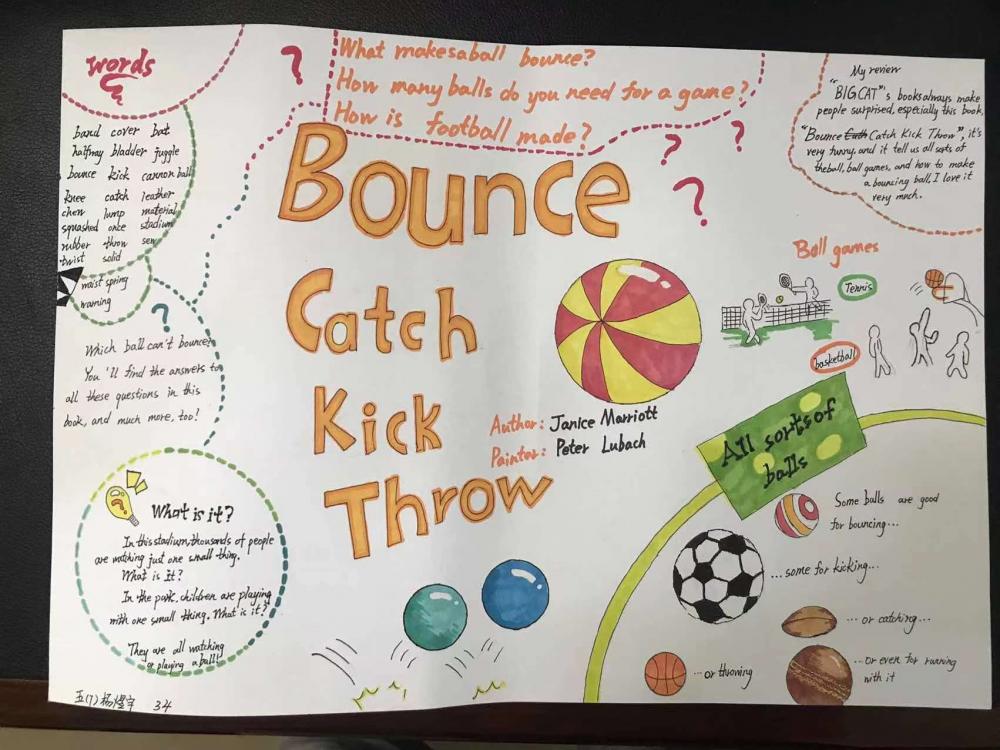 words
band cover bat
halfway bladder juggle
bounce kick cannon ball
knee catch leather
chew lump material
squashed once stadium
rubber throw sew
twist solid
waist spring
warning
What makes a ball bounce?
How many balls do you need for a game?
How is football made?
My review
"BIG CAT"'s books always make
people surprised, especially this book,
"Bounce Catch Kick Throw", it's
very funny, and it tell us all sorts of
the ball, ball games, and how to make
a bouncing ball, I love it
very much.
Bounce
Catch
Kick
Throw
Author: Janice Marriott
Painter: Peter Lubach
Ball games
Tennis
basketball
Which ball can't bounce?
You'll find the answers to
all these questions in this
book, and much more, too!
What is it?
In this stadium, thousands of people
are watching just one small thing.
What is It?
In the park, children are playing
with one small thing. What is it?
They are all watching
or playing a ball!
All sorts of
balls
Some balls are good
for bouncing...
...some for kicking...
... or catching...
...or throwing
...or even for running
with it
五(7) 杨 宇 34